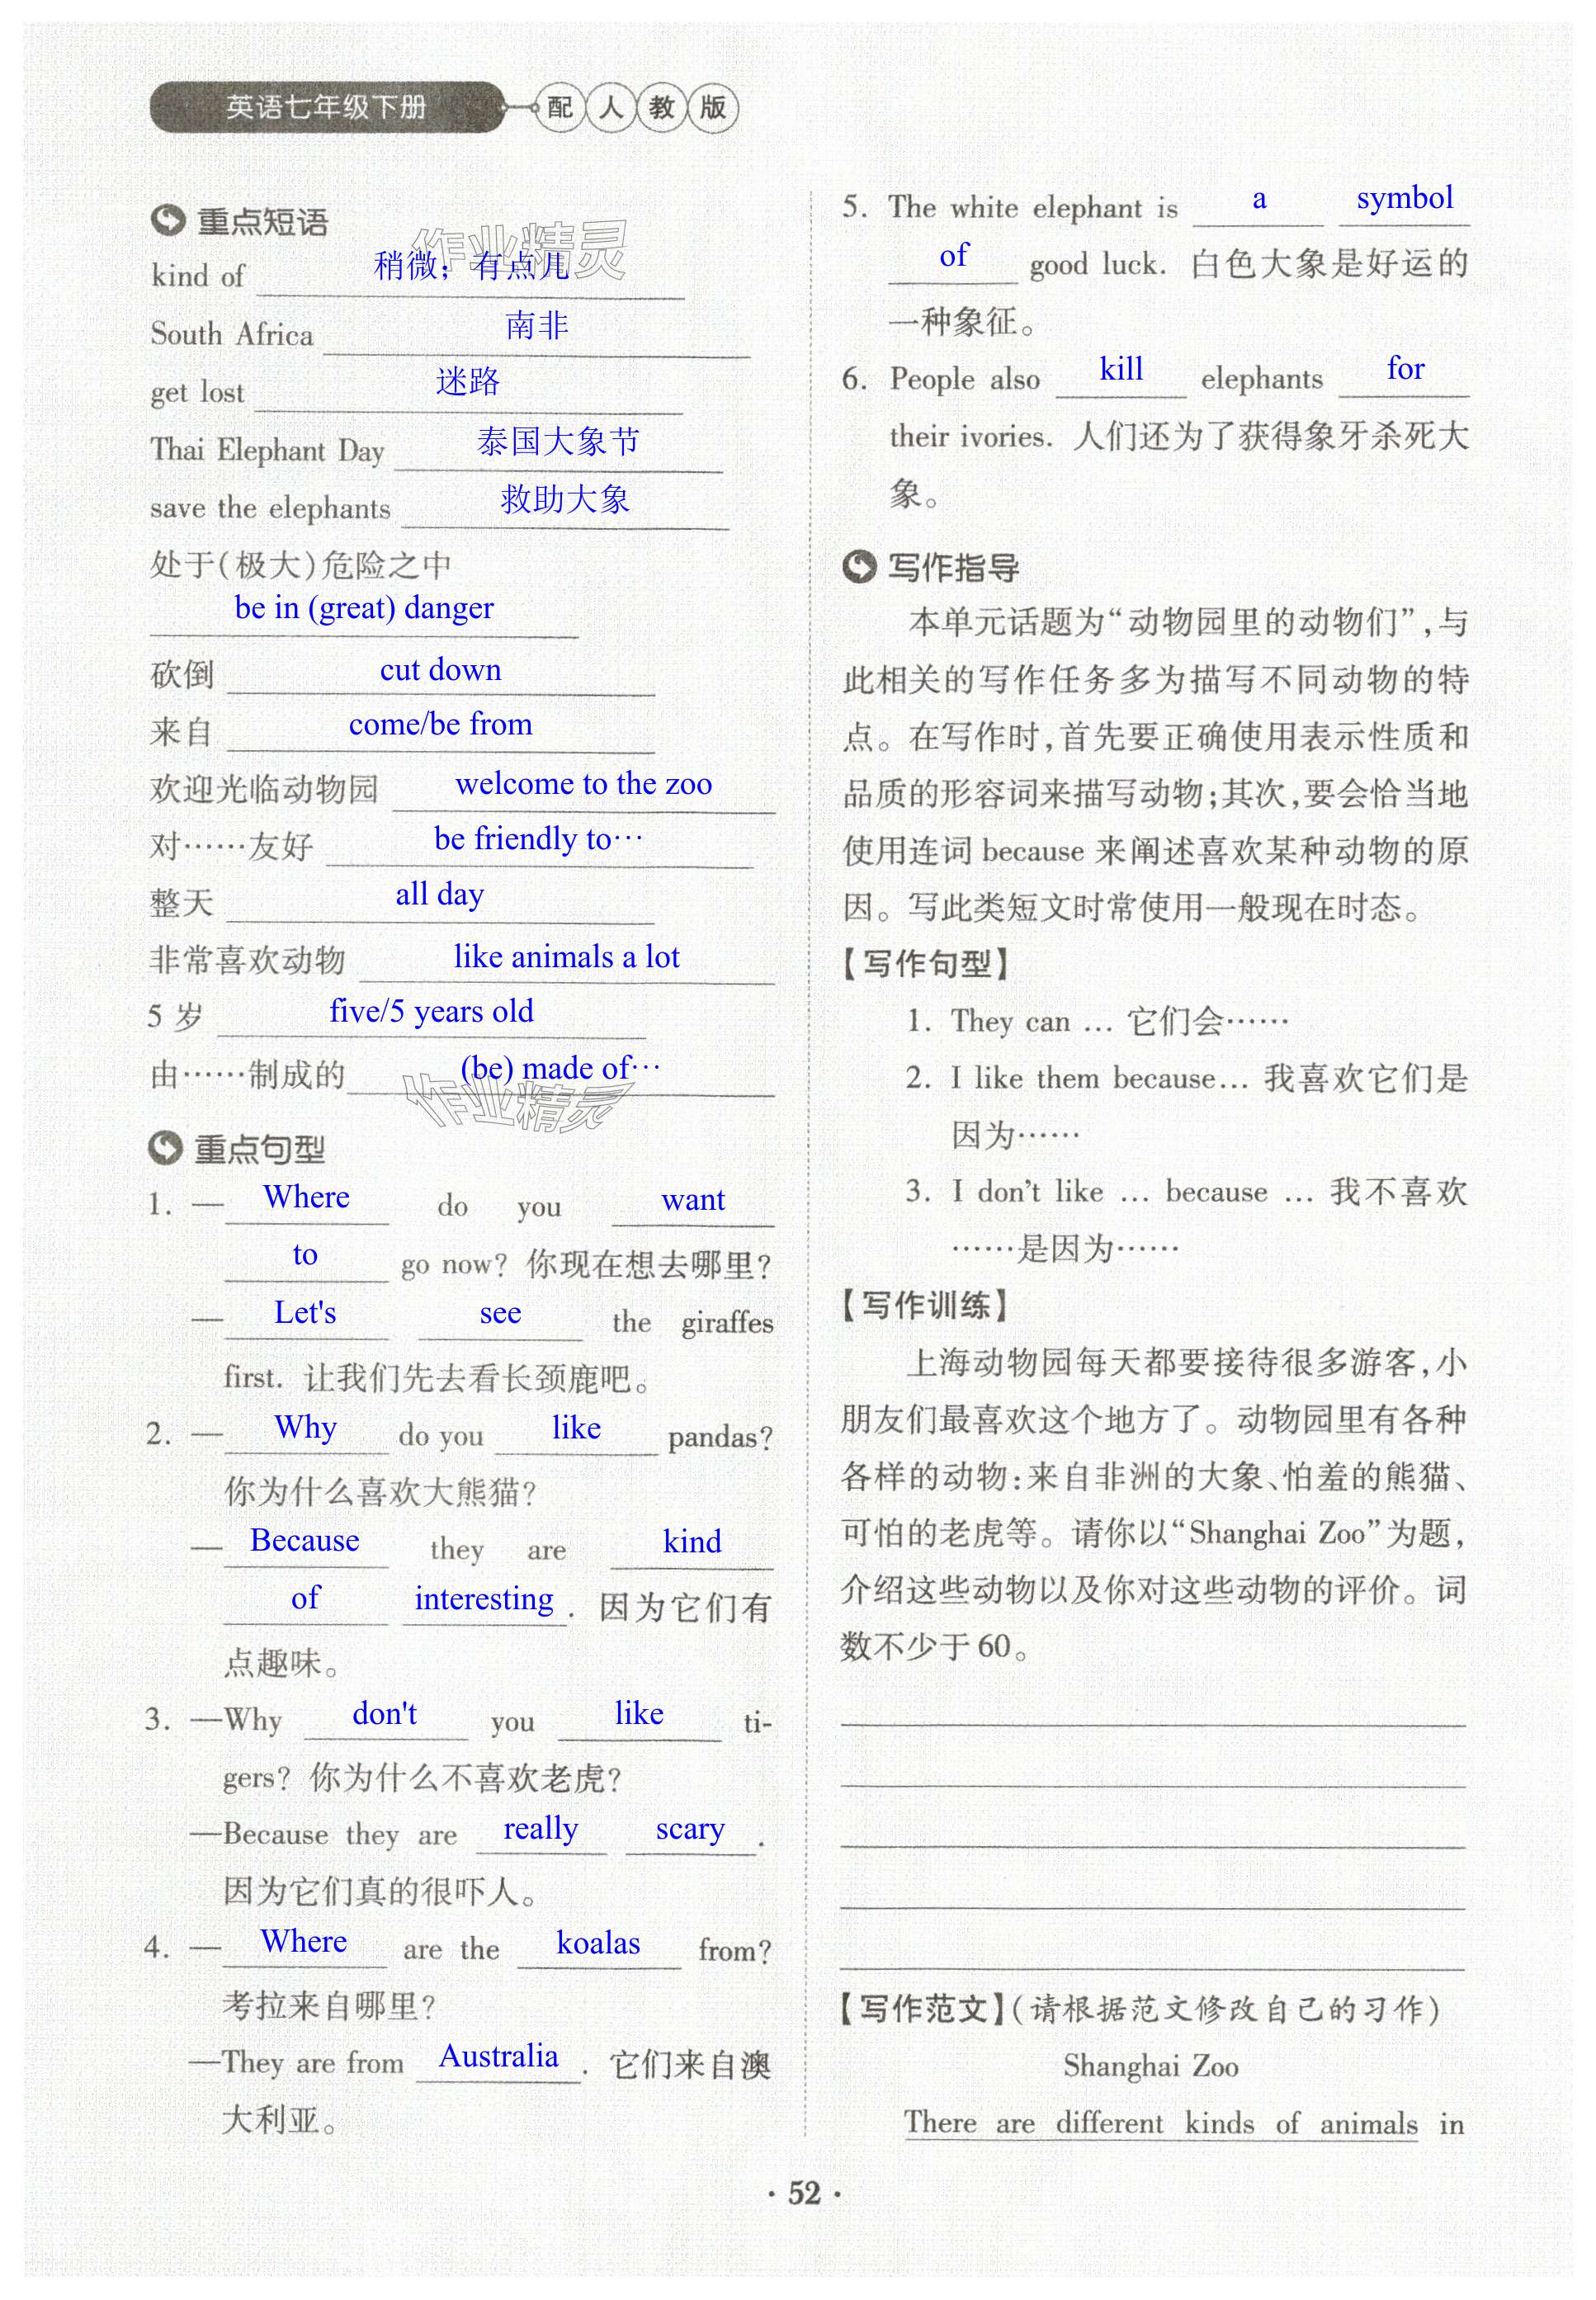 英语七年级下册 配人教版
重点短语
作业精灵
kind of 稍微；有点儿
South Africa 南非
get lost 迷路
Thai Elephant Day 泰国大象节
save the elephants 救助大象
处于(极大)危险之中
be in (great) danger
砍倒 cut down
来自 come/be from
欢迎光临动物园 welcome to the zoo
对……友好 be friendly to…
整天 all day
非常喜欢动物 like animals a lot
5 岁 five/5 years old
由……制成的 (be) made of…
作业精灵
重点句型
1. —Where do you want
to go now? 你现在想去哪里?
—Let's see the giraffes
first. 让我们先去看长颈鹿吧。
2. —Why do you like pandas?
你为什么喜欢大熊猫?
—Because they are kind
of interesting. 因为它们有
点趣味。
3. —Why don't you like ti-
gers? 你为什么不喜欢老虎?
—Because they are really scary.
因为它们真的很吓人。
4. —Where are the koalas from?
考拉来自哪里?
—They are from Australia. 它们来自澳
大利亚。
5. The white elephant is a symbol
of good luck. 白色大象是好运的
一种象征。
6. People also kill elephants for
their ivories. 人们还为了获得象牙杀死大
象。
写作指导
本单元话题为“动物园里的动物们”,与
此相关的写作任务多为描写不同动物的特
点。在写作时,首先要正确使用表示性质和
品质的形容词来描写动物;其次,要会恰当地
使用连词 because 来阐述喜欢某种动物的原
因。写此类短文时常使用一般现在时态。
【写作句型】
1. They can … 它们会……
2. I like them because… 我喜欢它们是
因为……
3. I don't like … because … 我不喜欢
……是因为……
【写作训练】
上海动物园每天都要接待很多游客,小
朋友们最喜欢这个地方了。动物园里有各种
各样的动物:来自非洲的大象、怕羞的熊猫、
可怕的老虎等。请你以“Shanghai Zoo”为题,
介绍这些动物以及你对这些动物的评价。词
数不少于 60。
【写作范文】(请根据范文修改自己的习作)
Shanghai Zoo
There are different kinds of animals in
· 52 ·